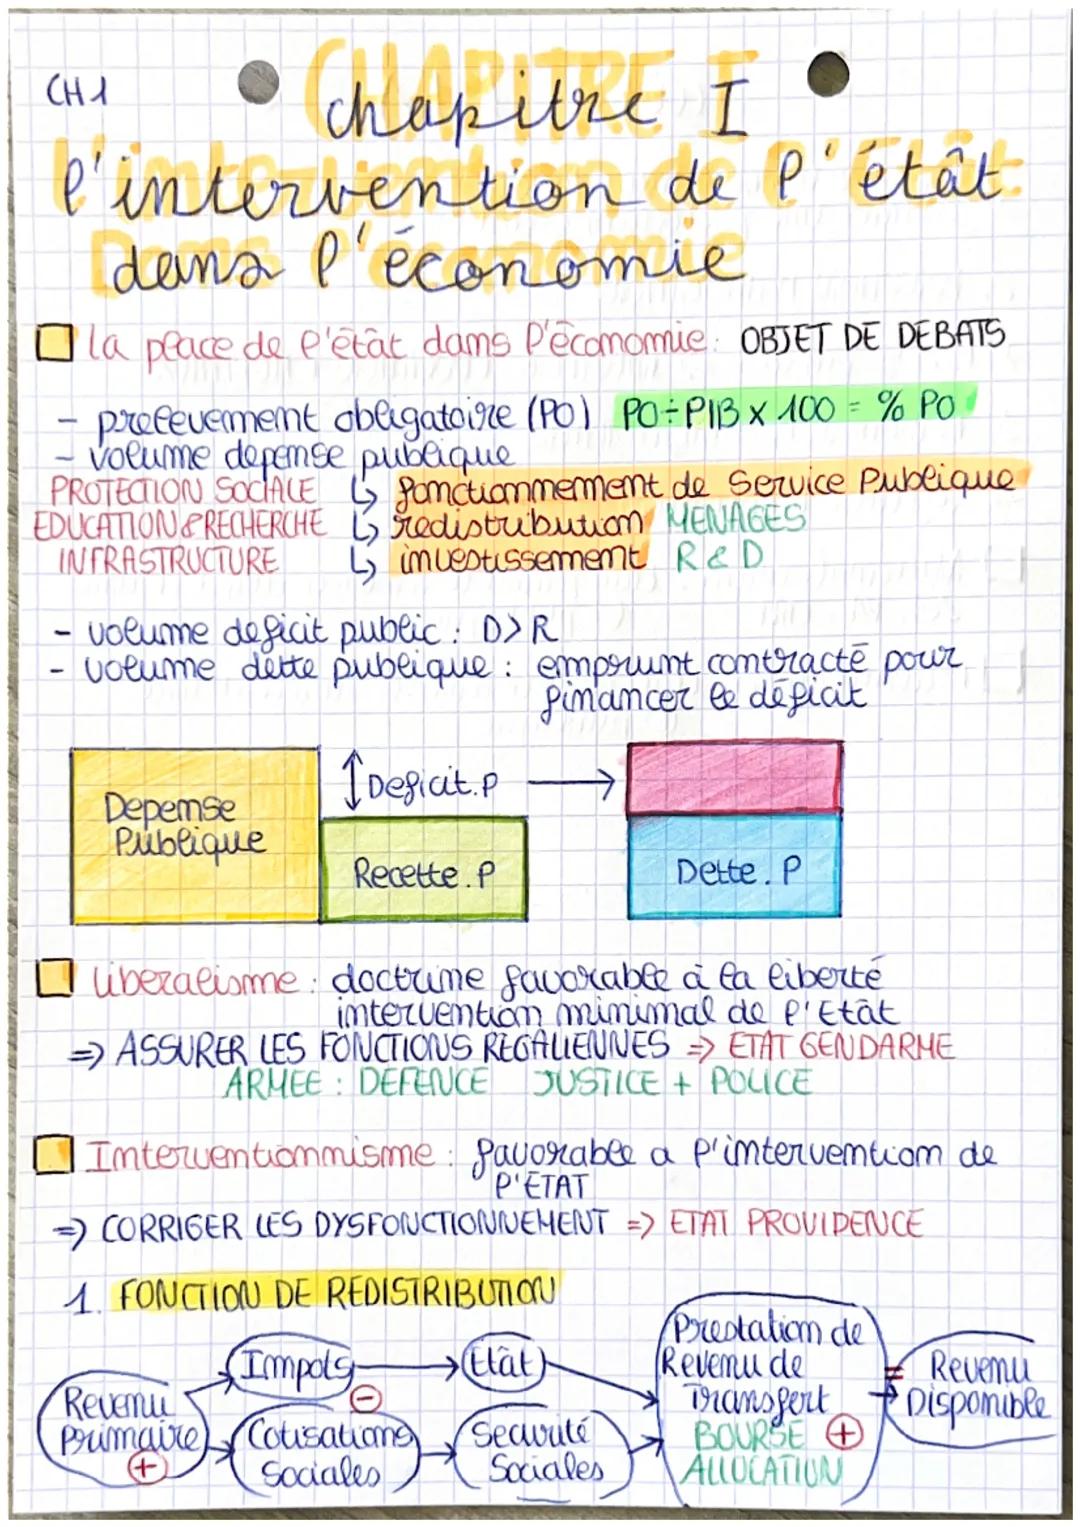 CH1
CHAPITRE I
chapitre I
l'intervention de l'étât
dans l'économie
la place de l'étât dans l'économie: OBJET DE DEBATS
- prelevement obligatoire (PO) PO÷PIB x 100 = % PO
- volume depense publique
PROTECTION SOCIALE ↳ fonctionnement de Service Publique
EDUCATION & RECHERCHE ↳ redistribution MENAGES
INFRASTRUCTURE ↳ investissement R & D
- volume deficit public : D>R
- volume dette publique : emprunt contracté pour
financer le déficit
Depense
Publique
↕ Deficit.P →
Recette.P
Dette.P
Liberalisme : doctrine favorable à la liberté
intervention minimal de l'Etât
=> ASSURER LES FONCTIONS REGALIENNES => ETAT GENDARME
ARMEE : DEFENCE JUSTICE + POLICE
Interventionnisme : favorable a l'intervention de
l'ETAT
=> CORRIGER LES DYSFONCTIONNEMENT => ETAT PROVIDENCE
1. FONCTION DE REDISTRIBUTION
Revenu
primaire
+
Impots
-
Cotisations
Sociales
Etât
Securité
Sociales
Prestation de
Revenu de
Transfert
BOURSE +
ALLOCATION
=
Revenu
Disponible